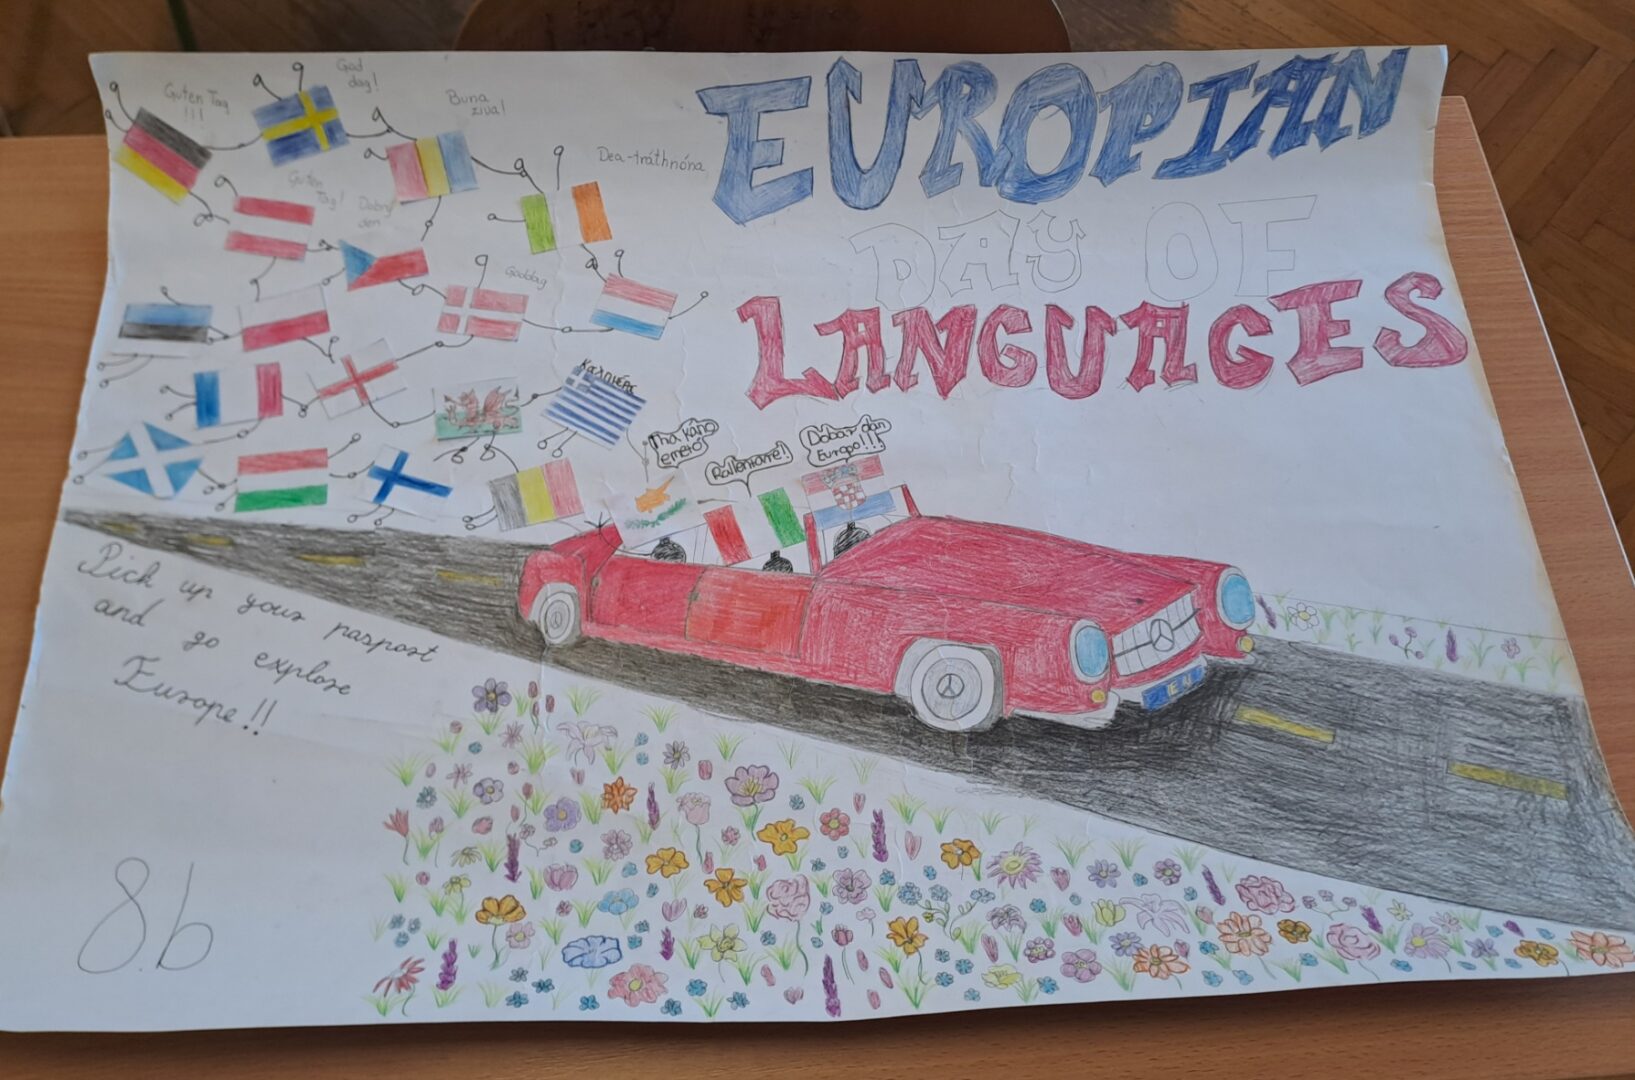 EUROPIAN
DAY OF
LANGUAGES
Guten Tag
!!!
God
dag!
Buna
ziua!
Dea-tráthnóna
Guten
Tag!
Dobrý
den
Goddag
Tha káno
emetó
Rallentare!
Dobar dan
Europo!!!
EU
Pick up your pasport
and go explore
Europe!!
8.b